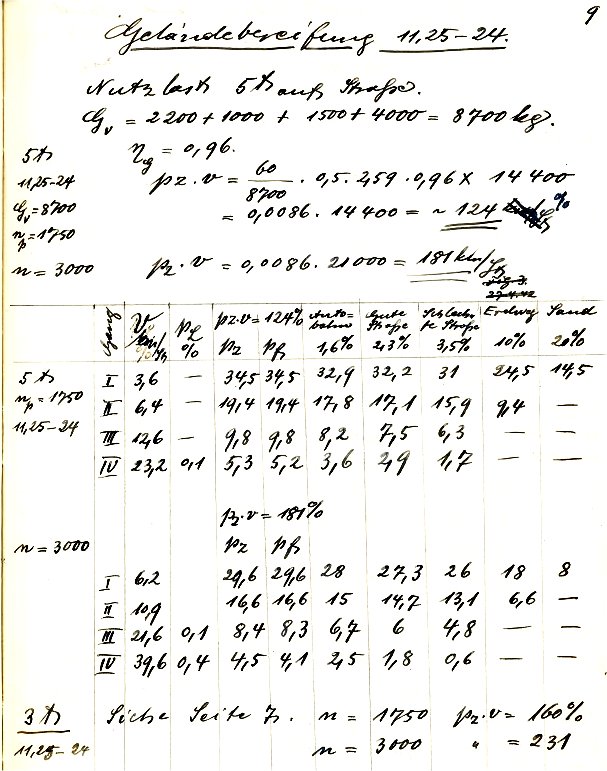 9
Geländebereifung 11,25-24.
Nutzlast 5 to auf Straße.
Gv = 2200 + 1000 + 1500 + 4000 = 8700 kg.
ηg = 0,96.
5 to
11,25-24
Gv = 8700
np = 1750
n = 3000
pz·v = 60/8700 · 0,5·259·0,96 x 14400
= 0,0086 · 14400 = ~ 124 %
pz·v = 0,0086·21000 = 181 km/
27.4.42
Gang V km/ pL % pz·v = 124% Auto-bahn Gute Straße Schlechte Straße Erdweg Sand
pz pf 1,6% 2,3% 3,5% 10% 20%
5 to I 3,6 — 34,5 34,5 32,9 32,2 31 24,5 14,5
np = 1750 II 6,4 — 19,4 19,4 17,8 17,1 15,9 9,4 —
11,25-24 III 12,6 — 9,8 9,8 8,2 7,5 6,3 — —
IV 23,2 0,1 5,3 5,2 3,6 2,9 1,7 — —
pz·v = 181%
n = 3000 pz pf
I 6,2 29,6 29,6 28 27,3 26 18 8
II 10,9 16,6 16,6 15 14,7 13,1 6,6 —
III 21,6 0,1 8,4 8,3 6,7 6 4,8 — —
IV 39,6 0,4 4,5 4,1 2,5 1,8 0,6 — —
3 to Siehe Seite 7. n = 1750 pz·v = 160%
11,25-24 n = 3000 " = 231